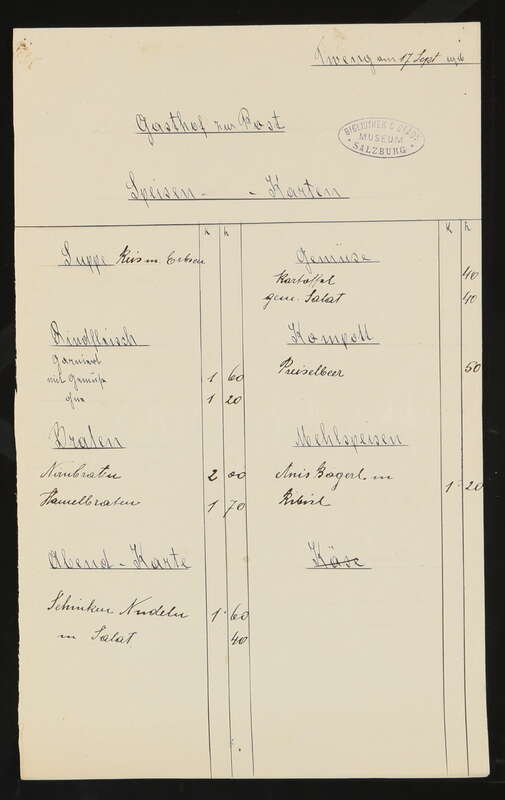 Tweng am 17 Sept
Gasthof zur Post
BIBLIOTHEK D. STÄDT.
MUSEUM
SALZBURG
Speisen - - Karten
K h
Suppe Reis m. Erbsen
Rindfleisch
garniert
mit Gemüse 1 60
1 20
Braten
Nierbraten 2 00
Hamelbraten 1 70
Abend - Karte
Schinken Nudeln 1 60
m Salat 40
K h
Gemüse
Kartoffel 40
gem. Salat 40
Kompott
Preiselbeer 50
Mehlspeisen
Anis Bogerl m
Ribisl 1 20
Käse